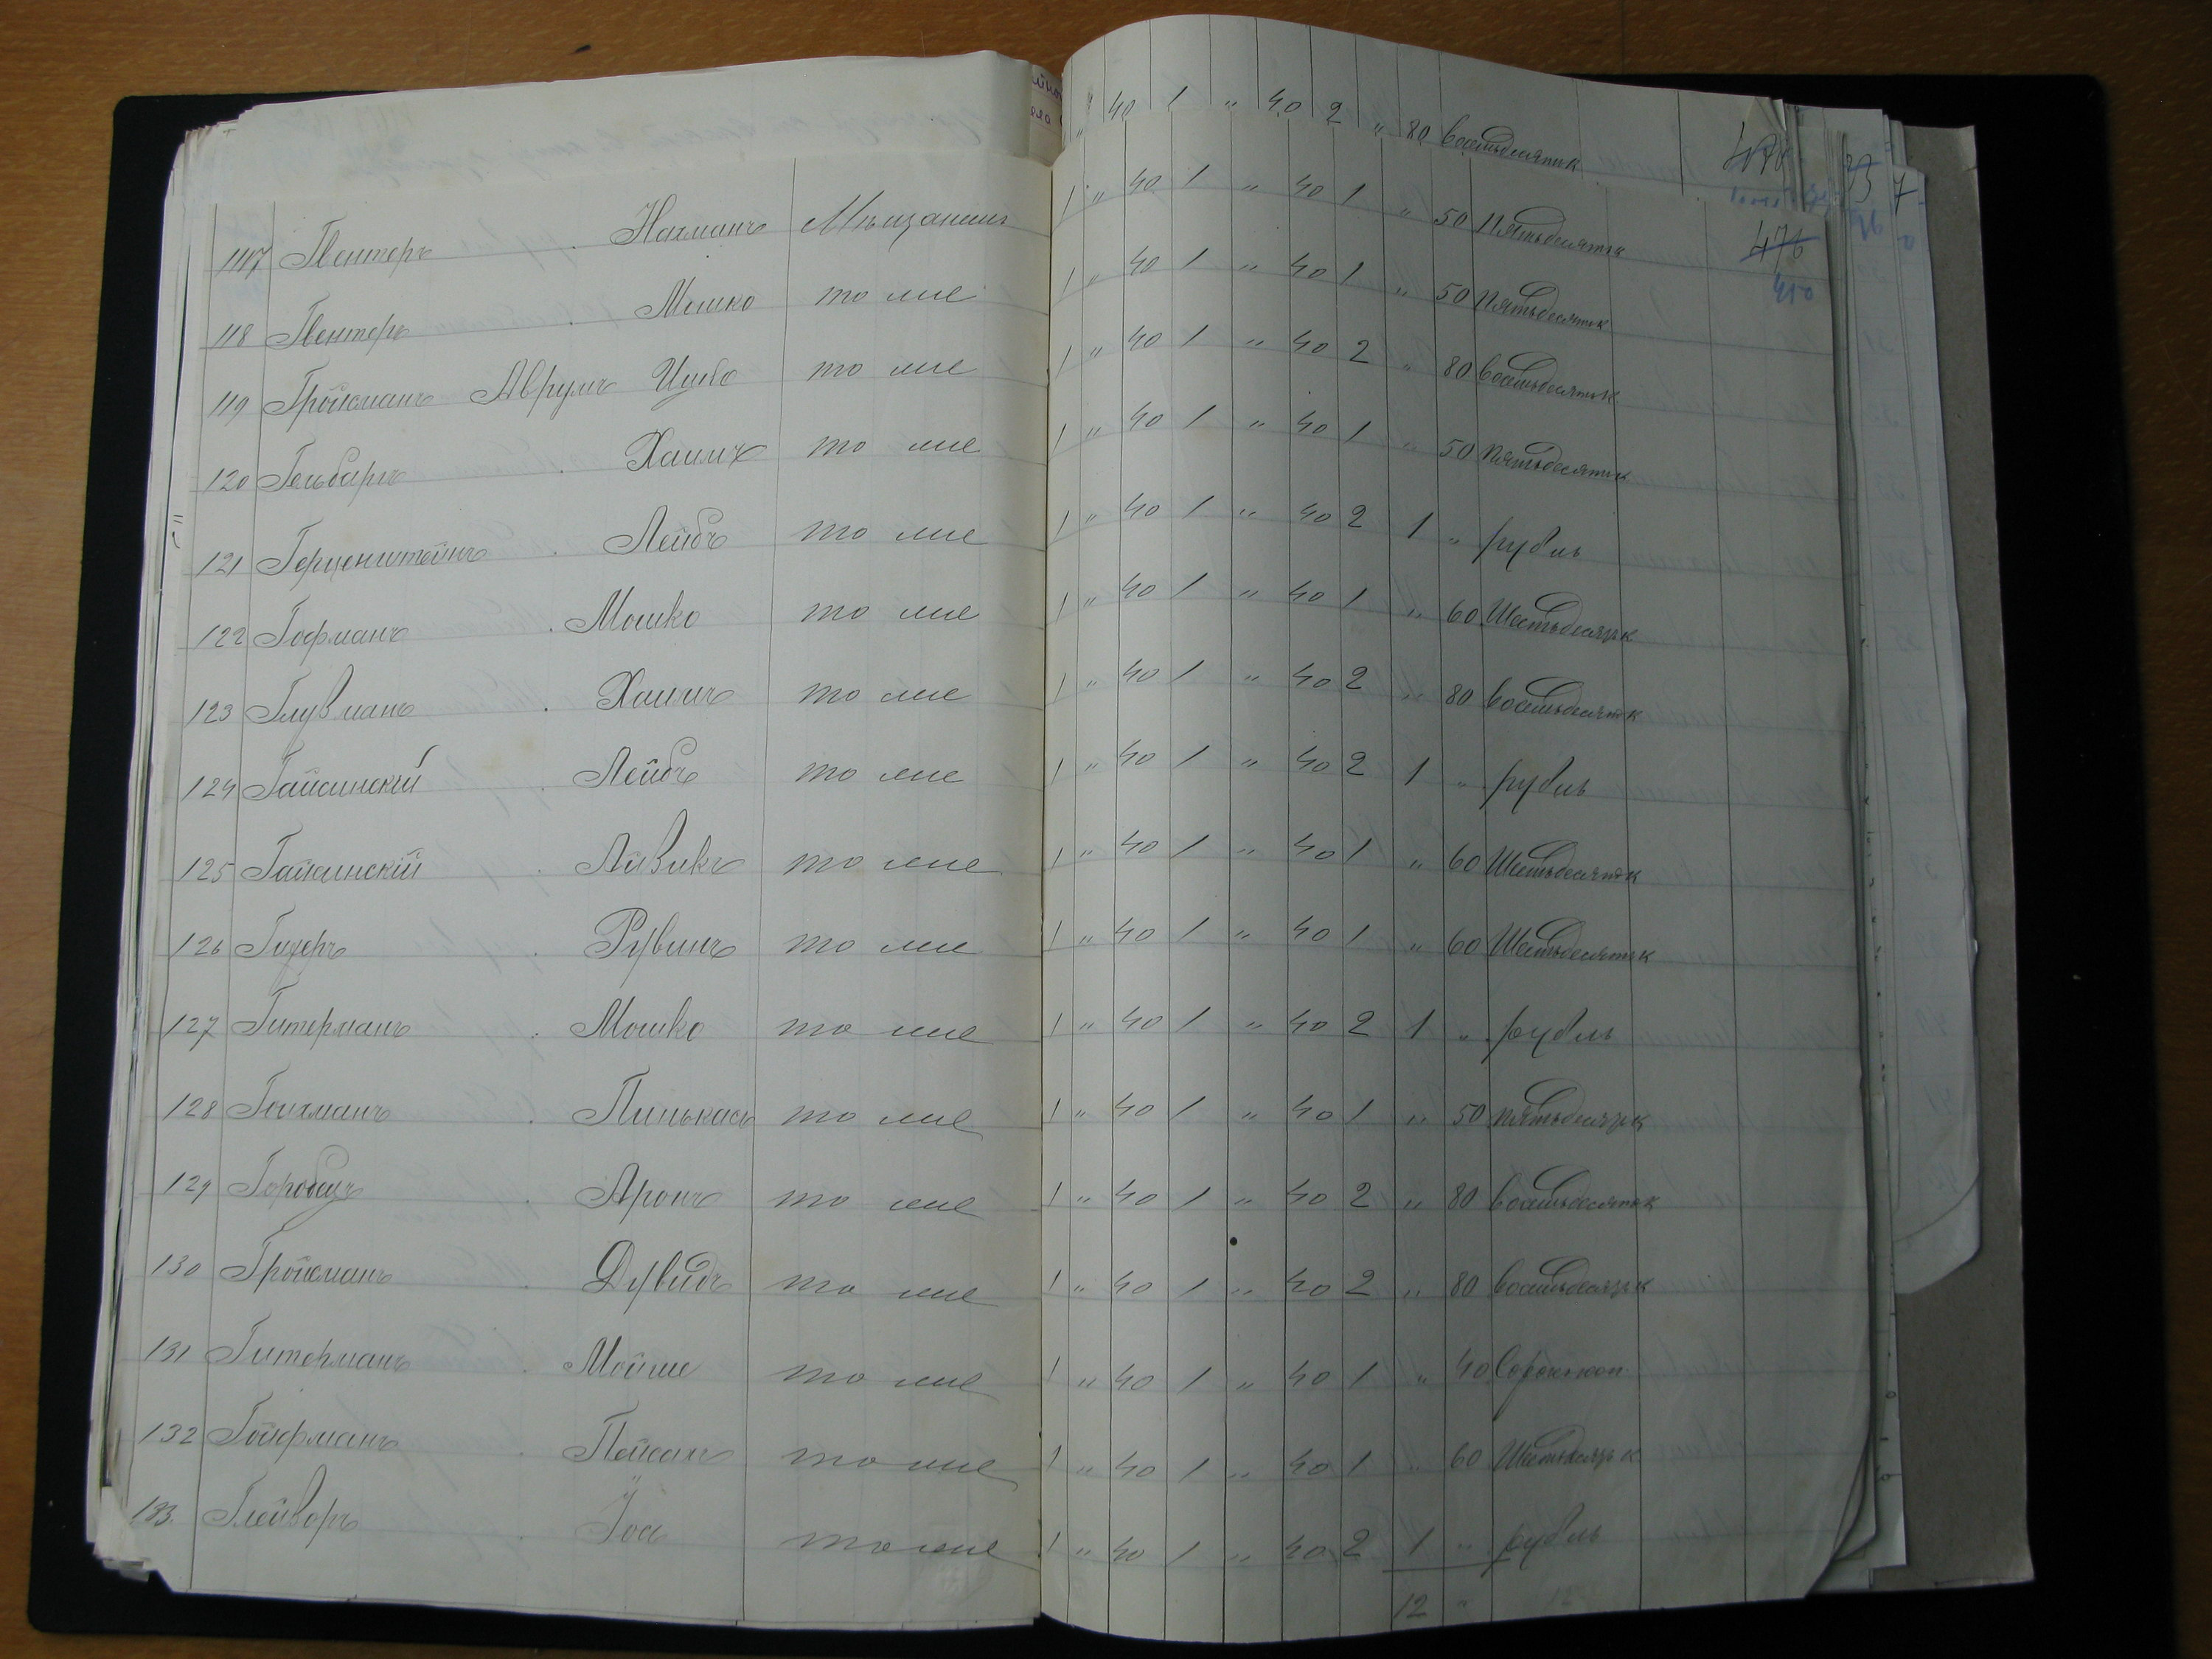 117 Гвентеръ Нахманъ Мѣщанинъ " 40 1 " 40 2 " 80 восемьдесятъ к
118 Гвентеръ Мошко то же 1 " 40 1 " 40 1 " 50 Пятьдесятъ к 476
119 Гройсманъ Аврумъ Ицко то же 1 " 40 1 " 40 1 " 50 Пятьдесятъ к 450
120 Гельбаръ Хаимъ то же 1 " 40 1 " 40 2 " 80 восемьдесятъ к
121 Герценштейнъ Лейбъ то же 1 " 40 1 " 40 1 " 50 пятьдесятъ к
122 Гофманъ Мошко то же 1 " 40 1 " 40 2 1 " рубль
123 Глузманъ Хаимъ то же 1 " 40 1 " 40 1 " 60 Шестьдесятъ к
124 Гайсинскій Лейбъ то же 1 " 40 1 " 40 2 " 80 восемьдесятъ к
125 Гайсинскій Айзикъ то же 1 " 40 1 " 40 2 1 " рубль
126 Рувинъ то же 1 " 40 1 " 40 1 " 60 Шестьдесятъ к
127 Гитерманъ Мошко то же 1 " 40 1 " 40 1 " 60 Шестьдесятъ к
128 Гоихманъ Пинькасъ то же 1 " 40 1 " 40 2 1 " рубль
129 Аронъ то же 1 " 40 1 " 40 1 " 50 пятьдесятъ к
130 Гройсманъ Дувидъ то же 1 " 40 1 " 40 2 " 80 восемьдесятъ к
131 Гитерманъ Мойше то же 1 " 40 1 " 40 2 " 80 восемьдесятъ к
132 Гойфманъ Пейсахъ то же 1 " 40 1 " 40 1 " 40 Сорокъ коп
133. Глейзоръ Іось то же 1 " 40 1 " 40 1 " 60 Шестьдесятъ к
1 " 40 1 " 40 2 1 " рубль
12 "